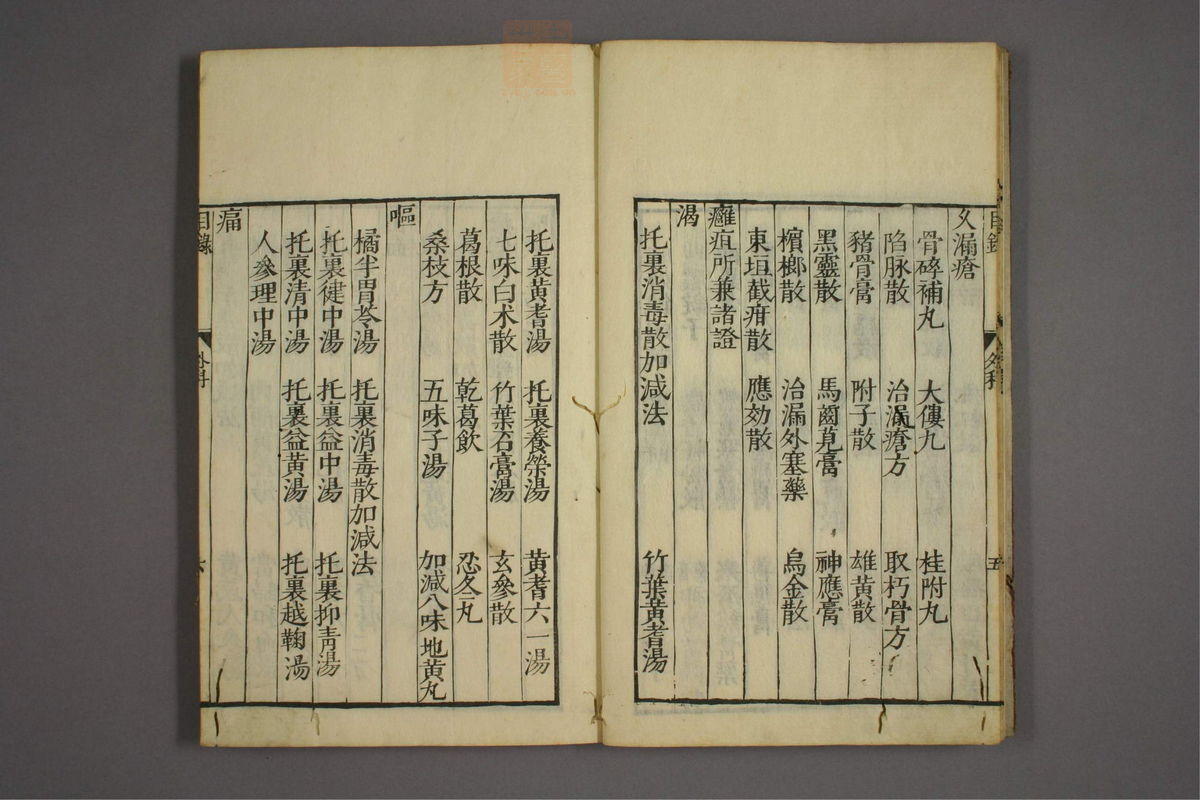 目錄
外科
五
久漏瘡
骨碎補丸 大僂九 桂附丸
陷脉散 治漏瘡方 取朽骨方
豬骨膏 附子散 雄黄散
黑靈散 馬齒莧膏 神應膏
檳榔散 治漏外塞藥 烏金散
東垣截疳散 應効散
癰疽所兼諸證
渴
托裏消毒散加減法 竹葉黄耆湯
托裏黄耆湯 托裏養榮湯 黄耆六一湯
七味白术散 竹葉石膏湯 玄參散
葛根散 乾葛飲 忍冬丸
桑枝方 五味子湯 加減八味地黄丸
嘔
橘半胃苓湯 托裏消毒散加減法
托裏健中湯 托裏益中湯 托裏抑青湯
托裏清中湯 托裏益黄湯 托裏越鞠湯
人參理中湯
痛
目錄
外科
六